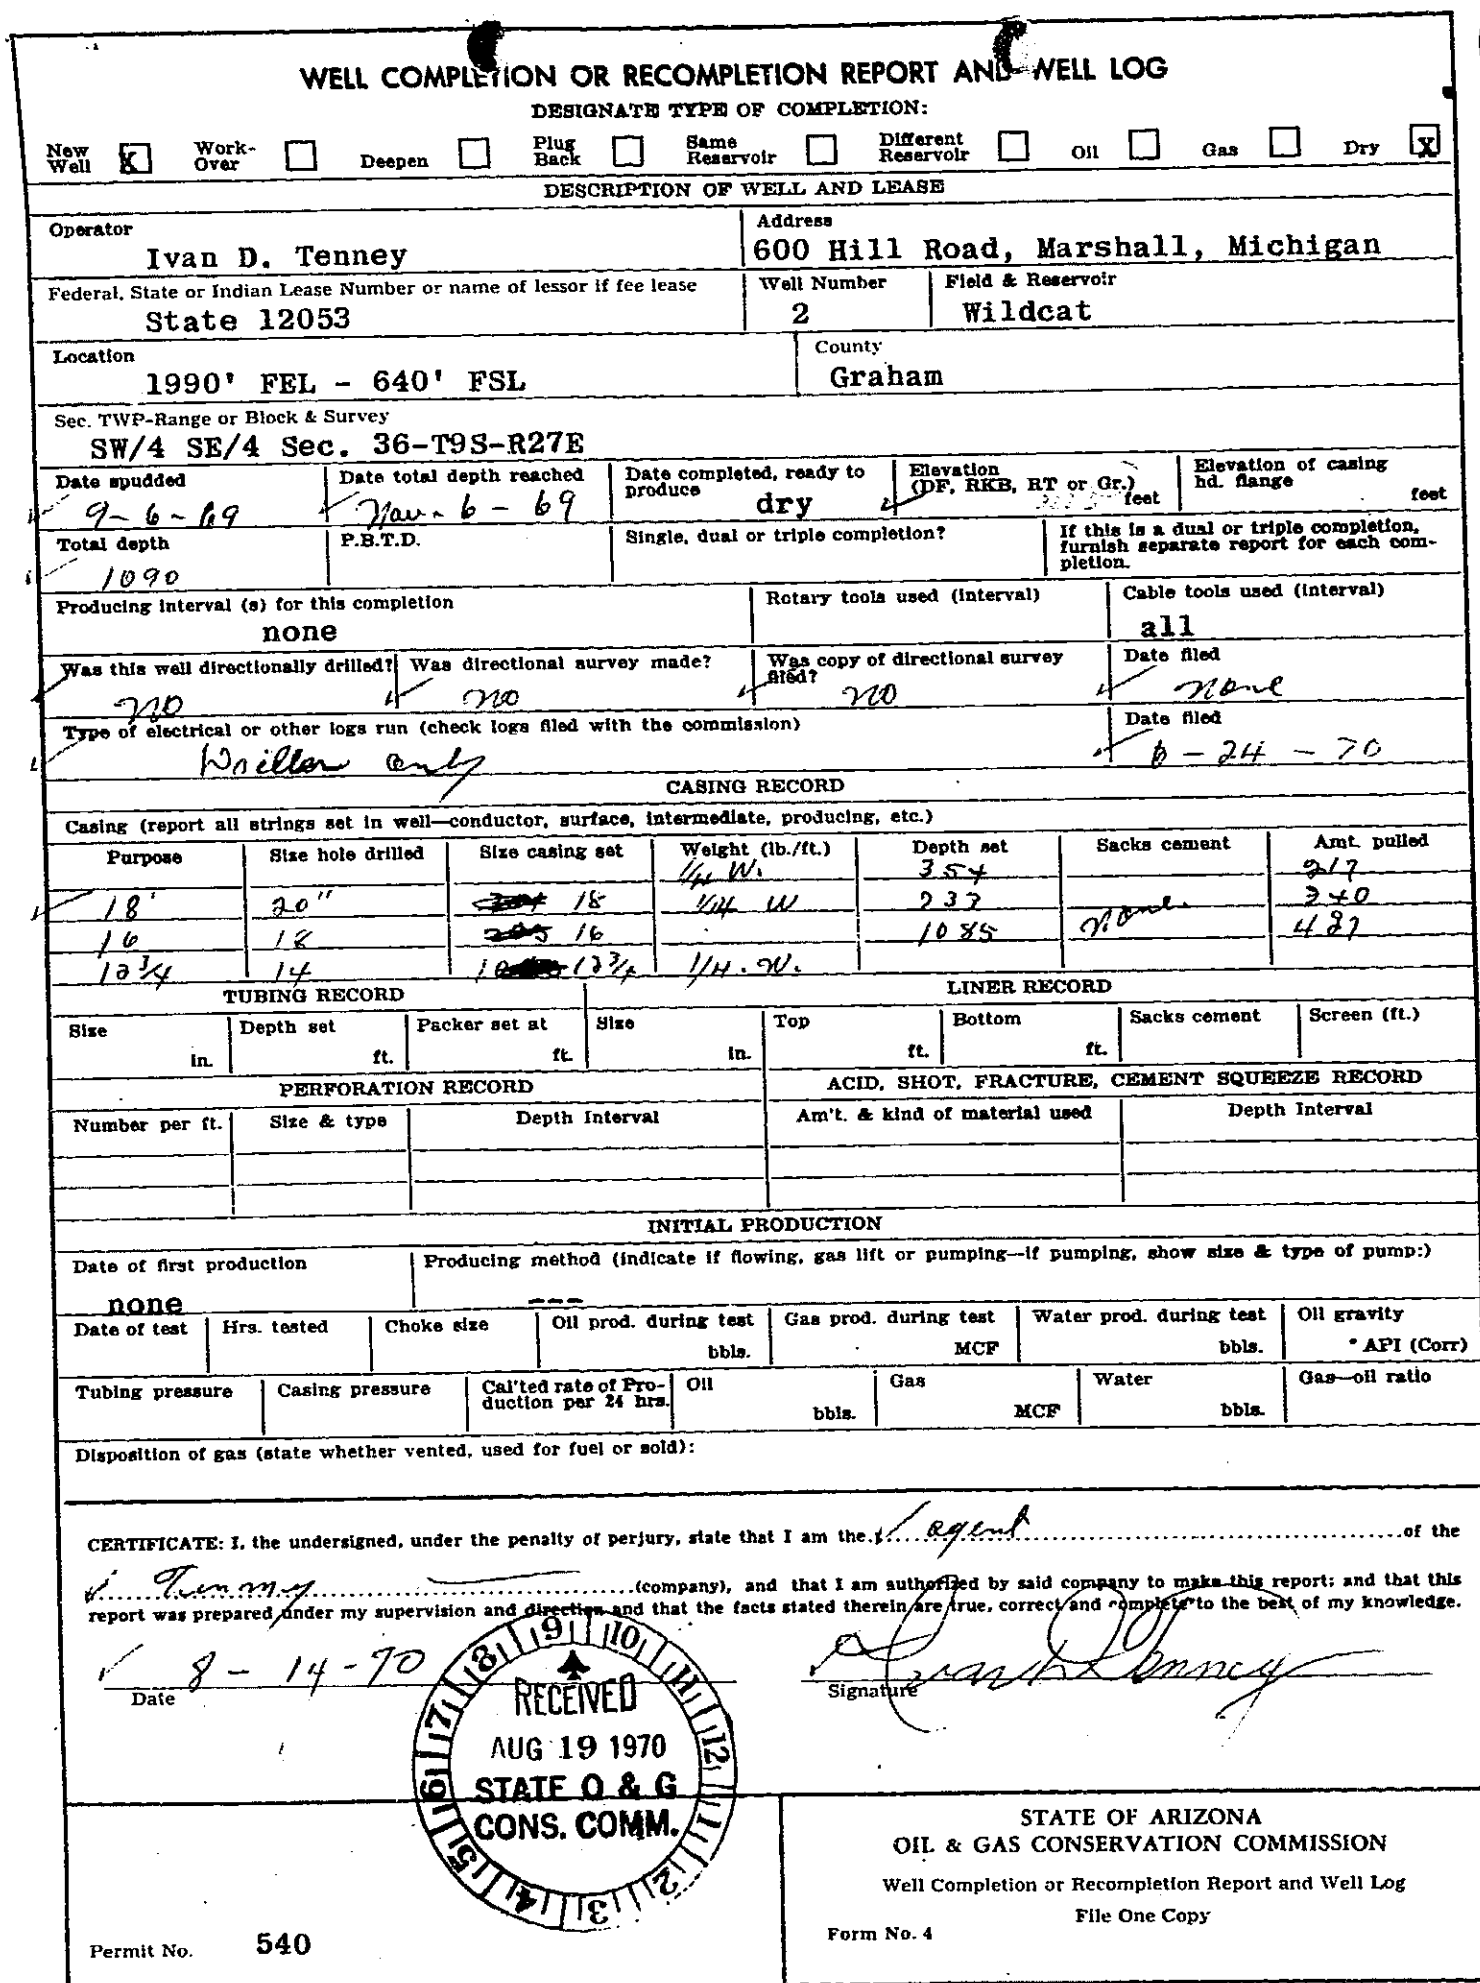 WELL COMPLETION OR RECOMPLETION REPORT AND WELL LOG
DESIGNATE TYPE OF COMPLETION:
New Well X Work-Over Deepen Plug Back Same Reservoir Different Reservoir Oil Gas Dry X
DESCRIPTION OF WELL AND LEASE
Operator Address
Ivan D. Tenney 600 Hill Road, Marshall, Michigan
Federal, State or Indian Lease Number or name of lessor if fee lease Well Number Field & Reservoir
State 12053 2 Wildcat
Location County
1990' FEL - 640' FSL Graham
Sec. TWP-Range or Block & Survey
SW/4 SE/4 Sec. 36-T9S-R27E
Date spudded Date total depth reached Date completed, ready to produce Elevation (DF, RKB, RT or Gr.) feet Elevation of casing hd. flange feet
9-6-69 Nov. 6-69 dry
Total depth P.B.T.D. Single, dual or triple completion? If this is a dual or triple completion, furnish separate report for each completion.
1090
Producing interval (s) for this completion Rotary tools used (interval) Cable tools used (interval)
none all
Was this well directionally drilled? Was directional survey made? Was copy of directional survey filed? Date filed
no no no none
Type of electrical or other logs run (check logs filed with the commission) Date filed
Driller only 6-24-70
CASING RECORD
Casing (report all strings set in well—conductor, surface, intermediate, producing, etc.)
Purpose Size hole drilled Size casing set Weight (lb./ft.) Depth set Sacks cement Amt. pulled
1/4 W. 354 217
18 20" 18 1/4 W
16 18 16 1085 none
12 3/4 14 12 3/4 1/4. W.
TUBING RECORD LINER RECORD
Size in. Depth set ft. Packer set at ft. Size in. Top ft. Bottom ft. Sacks cement Screen (ft.)
PERFORATION RECORD ACID, SHOT, FRACTURE, CEMENT SQUEEZE RECORD
Number per ft. Size & type Depth Interval Am't. & kind of material used Depth Interval
INITIAL PRODUCTION
Date of first production Producing method (indicate if flowing, gas lift or pumping—if pumping, show size & type of pump:)
none ---
Date of test Hrs. tested Choke size Oil prod. during test bbls. Gas prod. during test MCF Water prod. during test bbls. Oil gravity ° API (Corr)
Tubing pressure Casing pressure Cal'ted rate of Production per 24 hrs. Oil bbls. Gas MCF Water bbls. Gas—oil ratio
Disposition of gas (state whether vented, used for fuel or sold):
CERTIFICATE: I, the undersigned, under the penalty of perjury, state that I am the agent of the
(company), and that I am authorized by said company to make this report; and that this
report was prepared under my supervision and direction and that the facts stated therein are true, correct and complete to the best of my knowledge.
8-14-70 Ivan D Tenney
Date Signature
RECEIVED
AUG 19 1970
STATE O & G
CONS. COMM.
1 2 3 4 5 6 7 8 9 10 11 12
STATE OF ARIZONA
OIL & GAS CONSERVATION COMMISSION
Well Completion or Recompletion Report and Well Log
File One Copy
Form No. 4
Permit No. 540